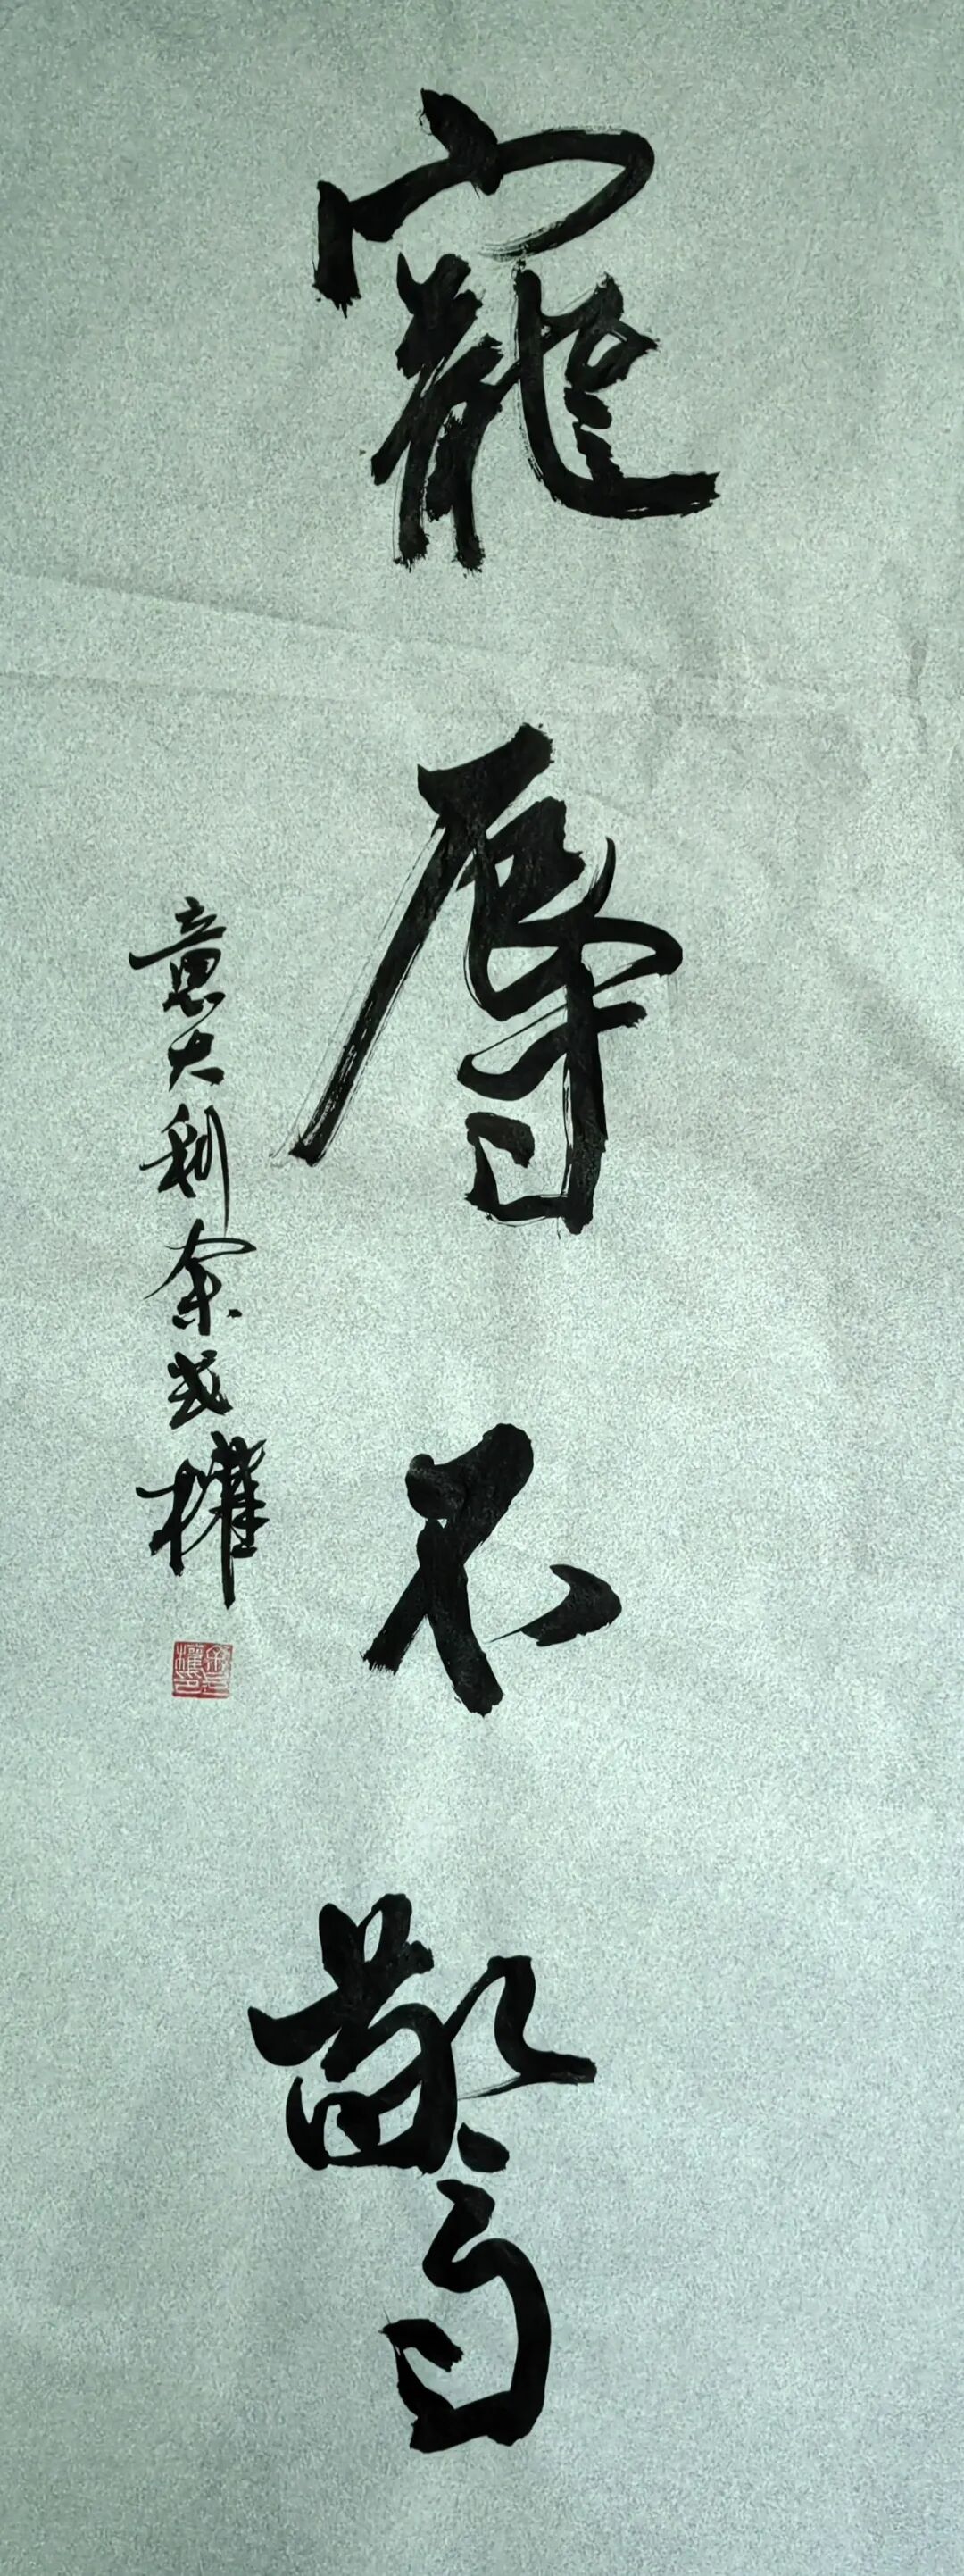 寵辱不驚
意大利余武權